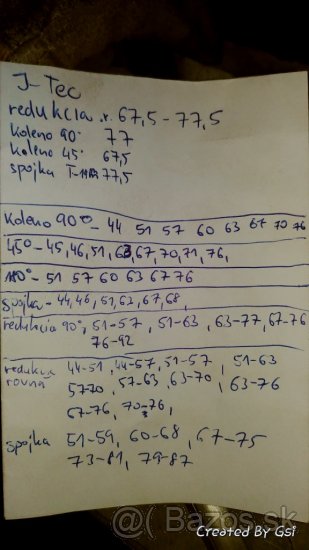 J-Tec
redukcia .r. 67,5-77,5
koleno 90° 77
koleno 45° 67,5
spojka 77,5
Koleno 90° - 44 51 57 60 63 67 70 76
45° - 45, 46, 51, 63, 67, 70, 71, 76,
110° - 51 57 60 63 67 76
Spojka - 44, 46, 51, 62, 67, 68,
redukcia 90°, 51-57, 51-63, 63-77, 67-76
76-92
redukcia 44-51, 44-57, 51-57, 51-63
rovná 57-70, 57-63, 63-70, 63-76
67-76, 70-76,
spojka 51-59, 60-68, 67-75
73-81, 79-87
@( Bazos.sk
Created By Gsi